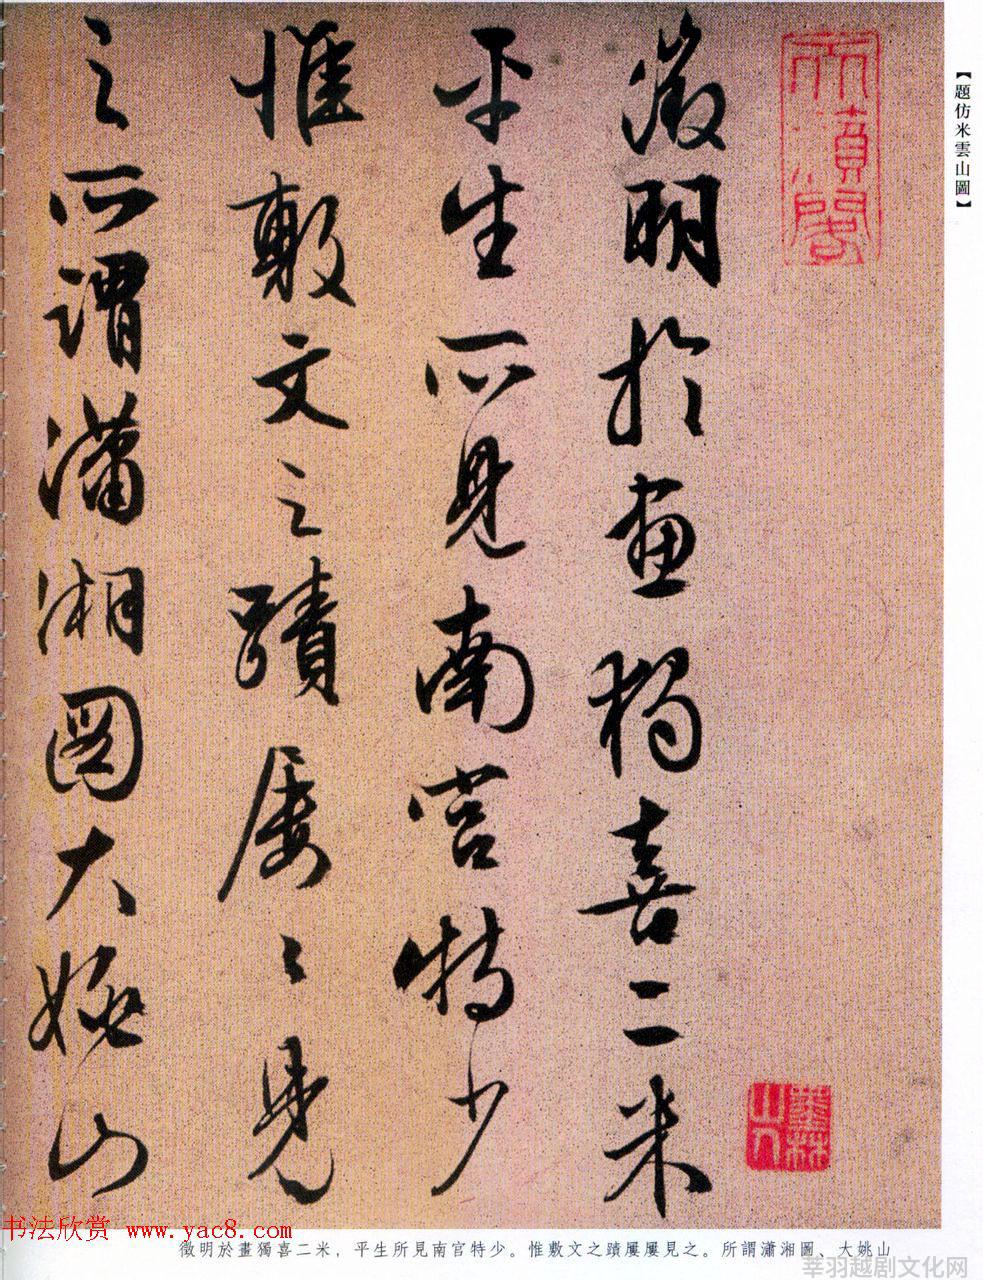 【題仿米雲山圖】
墨林山人
徵明於畫獨喜二米
平生所見南宮特少
惟敷文之蹟屢〻見
之所謂瀟湘圖大姚山
书法欣赏 www.yac8.com
徵明於畫獨喜二米，平生所見南官特少。惟敷文之蹟屢屢見之。所謂瀟湘圖、大姚山
莘羽越剧文化网